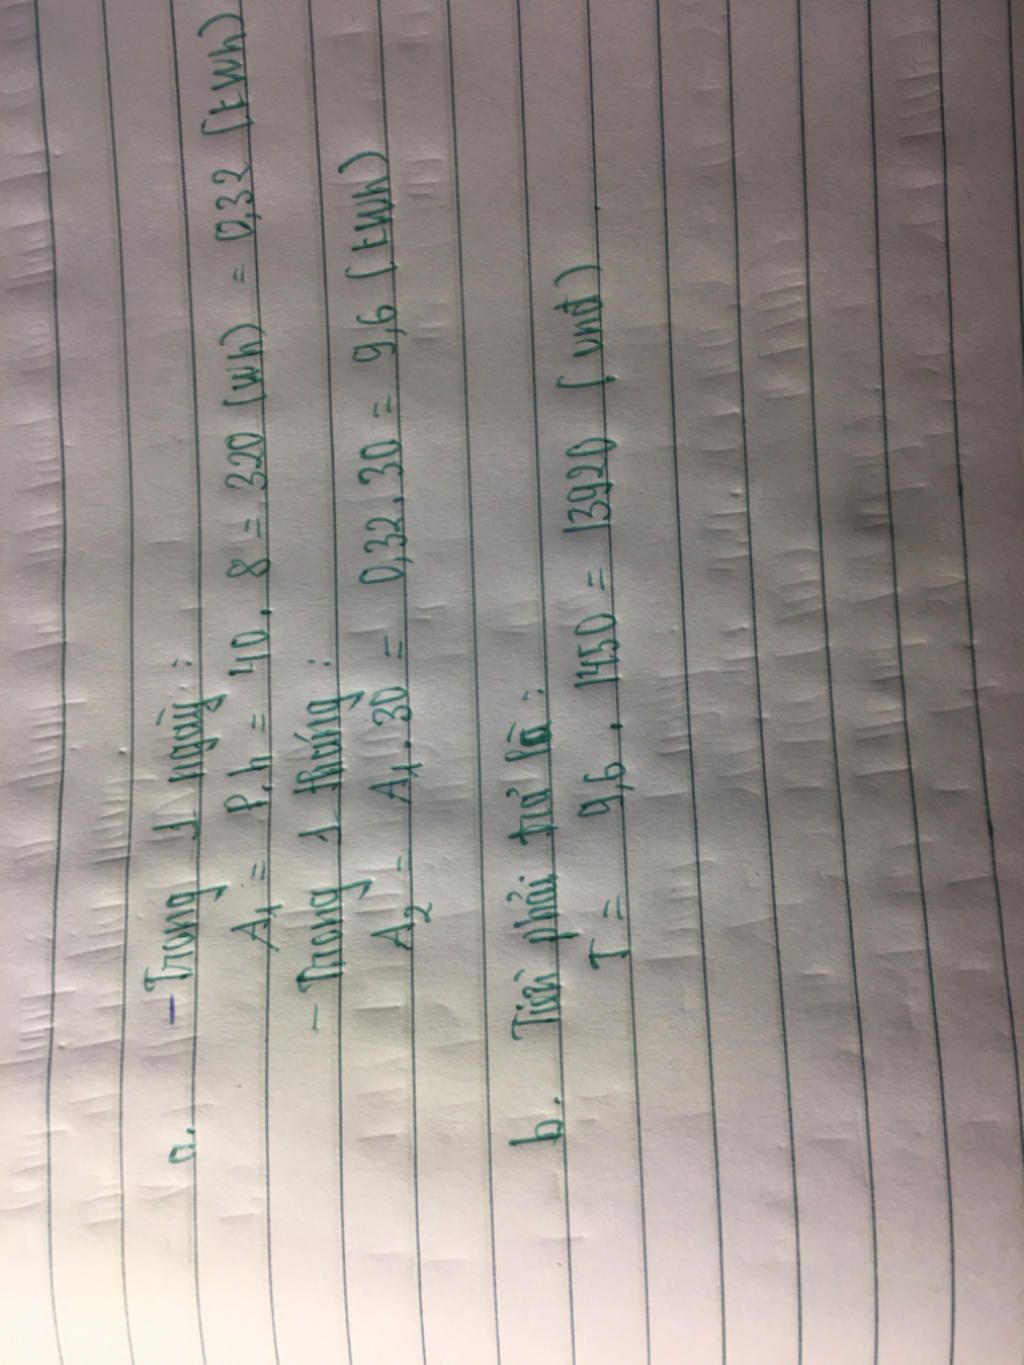 a. - Trong 1 ngày :
A1 = P.h = 40 . 8 = 320 (Wh) = 0,32 (kWh)
- Trong 1 tháng :
A2 = A1 . 30 = 0,32 . 30 = 9,6 (kWh)
b. Tiền phải trả là :
T = 9,6 . 1450 = 13920 (vnđ)